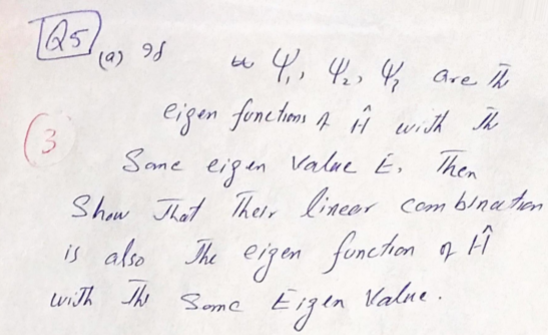 Q5
(a) If Ψ₁, Ψ₂, Ψ₃ are the
eigen functions of Ĥ with the
(3
Same eigen value E, Then
Show That Their linear combination
is also The eigen function of Ĥ
with The Same Eigen Value.